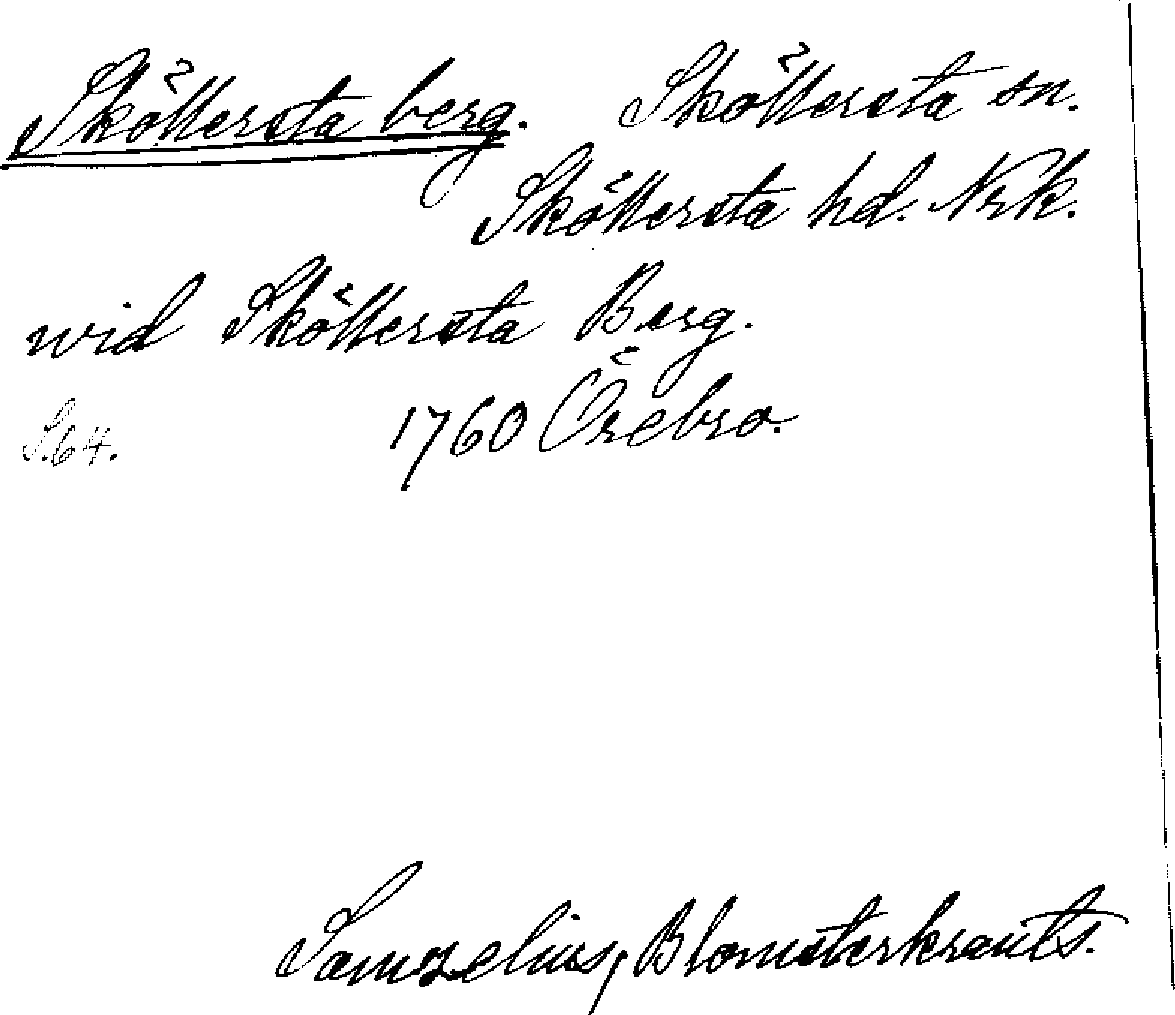 Sköllersta berg. Sköllersta sn.
Sköllersta hd. Nrk.
wid Sköllersta Berg.
S.64. 1760 Örebro.
Samzelius, Blomsterkrants.